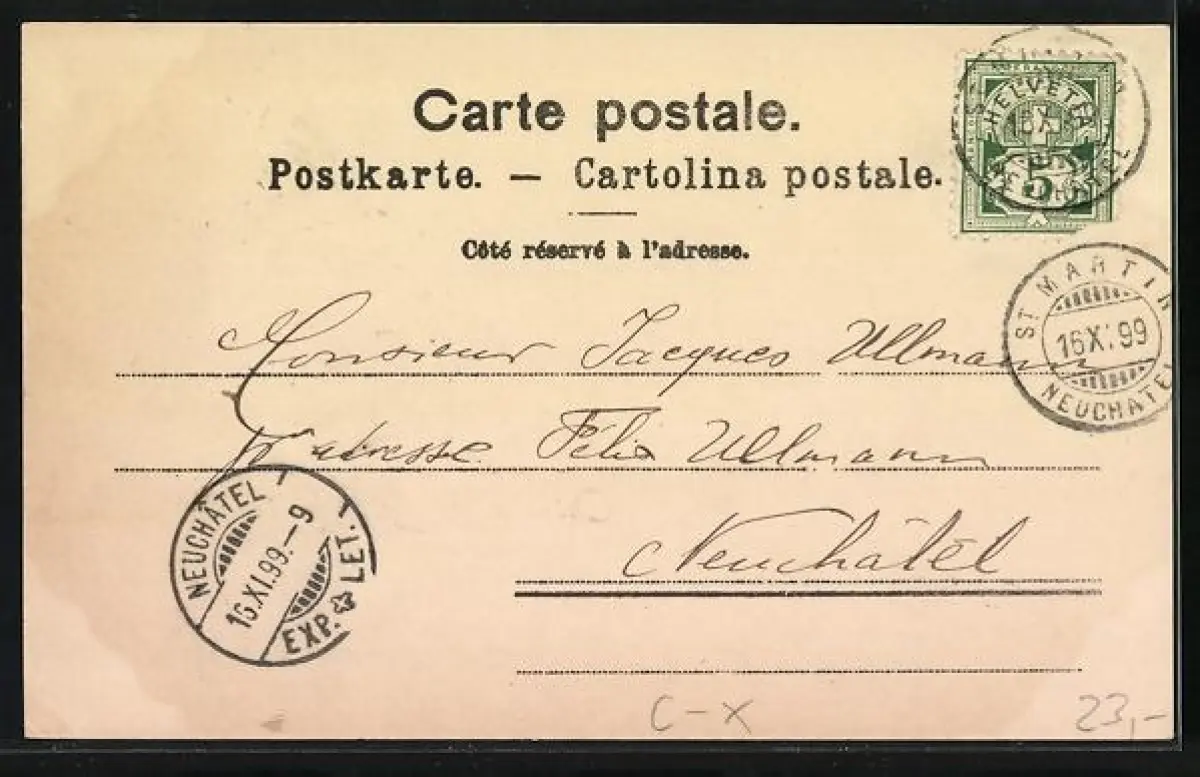 Carte postale.
Postkarte. — Cartolina postale.
Côté réservé à l'adresse.
HELVETIA
5
ST MARTIN
16 XI. 99
NEUCHATEL
Monsieur Jacques Ullmann
adresse Félix Ullmann
Neuchâtel
NEUCHÂTEL
16.XI.99.–9
EXP. LET.
C–X
23,–